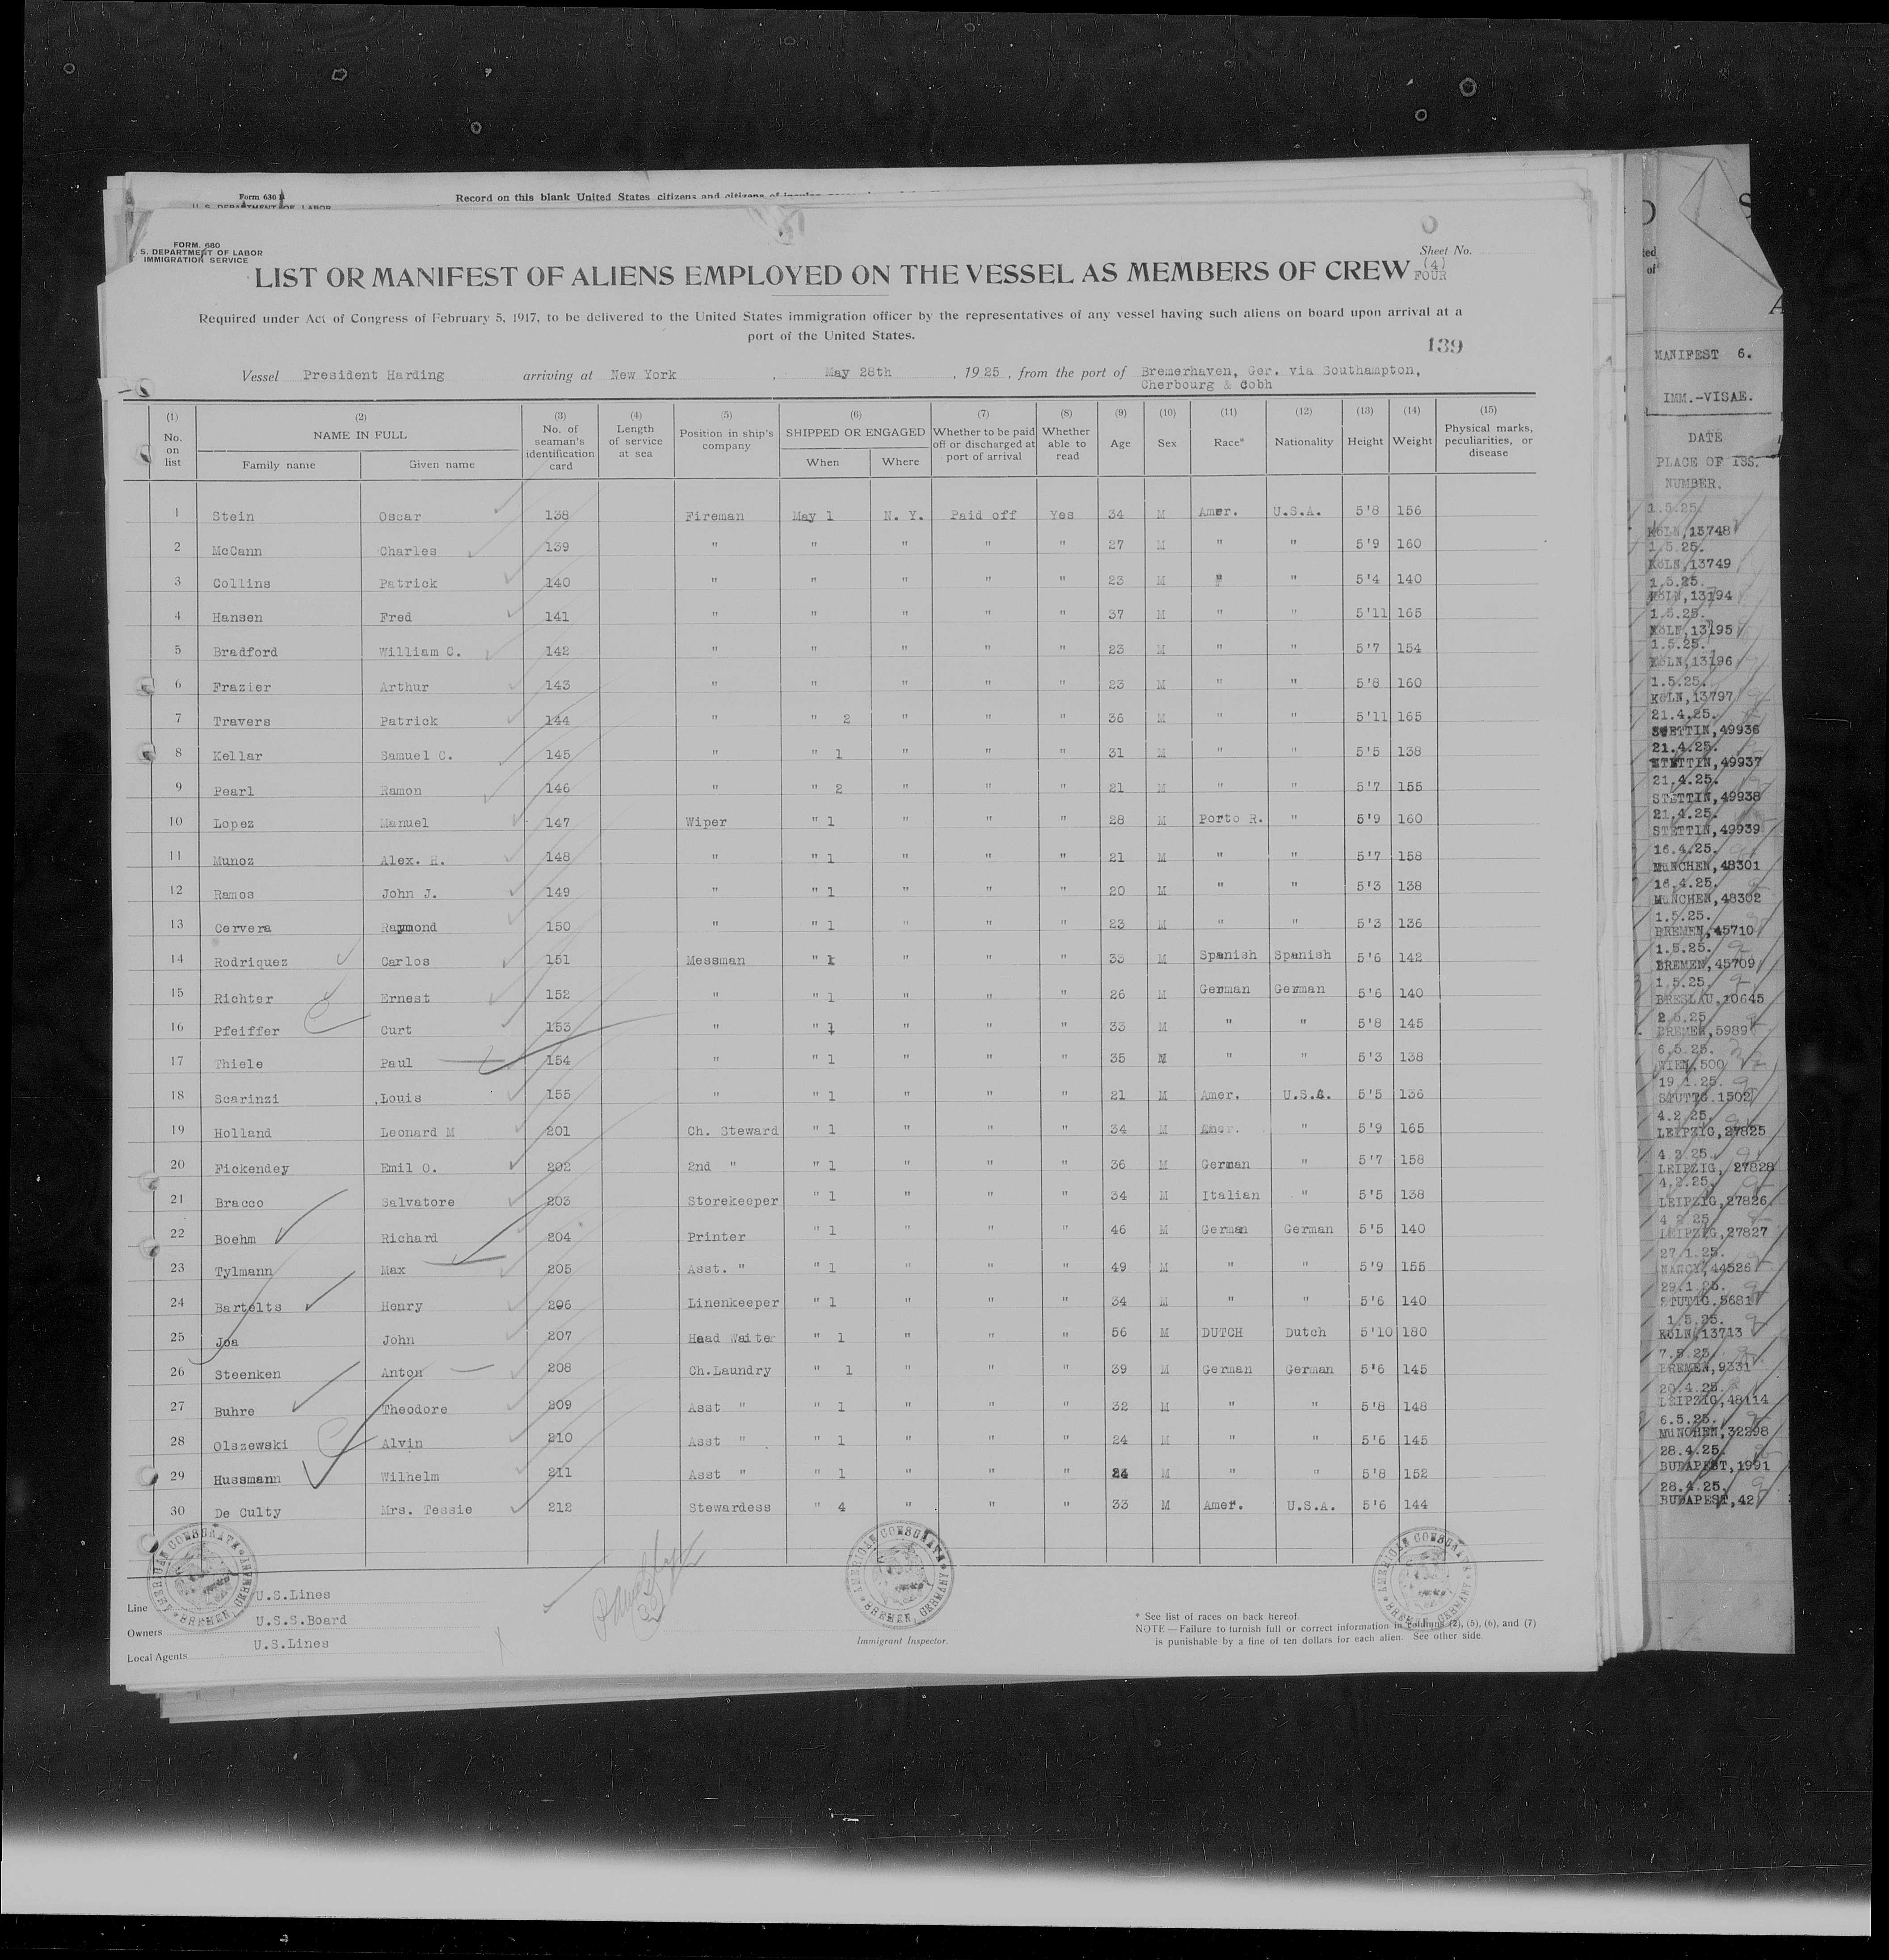 Form 630
U. S. DEPARTMENT OF LABOR
Record on this blank United States citizens and citizens of insular
FORM. 680
S. DEPARTMENT OF LABOR
IMMIGRATION SERVICE
Sheet No.
(4)
FOUR
LIST OR MANIFEST OF ALIENS EMPLOYED ON THE VESSEL AS MEMBERS OF CREW
Required under Act of Congress of February 5, 1917, to be delivered to the United States immigration officer by the representatives of any vessel having such aliens on board upon arrival at a
port of the United States.
139
Vessel President Harding arriving at New York, May 28th, 1925, from the port of Bremerhaven, Ger. via Southampton,
Cherbourg & Cobh
(1) (2) (3) (4) (5) (6) (7) (8) (9) (10) (11) (12) (13) (14) (15)
No. on list NAME IN FULL Family name Given name No. of seaman's identification card Length of service at sea Position in ship's company SHIPPED OR ENGAGED When Where Whether to be paid off or discharged at port of arrival Whether able to read Age Sex Race* Nationality Height Weight Physical marks, peculiarities, or disease
1 Stein Oscar 138 Fireman May 1 N. Y. Paid off Yes 34 M Amer. U.S.A. 5'8 156
2 McCann Charles 139 " " " " " 27 M " " 5'9 160
3 Collins Patrick 140 " " " " " 23 M " " 5'4 140
4 Hansen Fred 141 " " " " " 37 M " " 5'11 165
5 Bradford William C. 142 " " " " " 23 M " " 5'7 154
6 Frazier Arthur 143 " " " " " 23 M " " 5'8 160
7 Travers Patrick 144 " " 2 " " " 36 M " " 5'11 165
8 Kellar Samuel C. 145 " " 1 " " " 31 M " " 5'5 138
9 Pearl Ramon 146 " " 2 " " " 21 M " " 5'7 155
10 Lopez Manuel 147 Wiper " 1 " " " 28 M Porto R. " 5'9 160
11 Munoz Alex. H. 148 " " 1 " " " 21 M " " 5'7 158
12 Ramos John J. 149 " " 1 " " " 20 M " " 5'3 138
13 Cervera Raymond 150 " " 1 " " " 23 M " " 5'3 136
14 Rodriquez Carlos 151 Messman " 1 " " " 33 M Spanish Spanish 5'6 142
15 Richter Ernest 152 " " 1 " " " 26 M German German 5'6 140
16 Pfeiffer Curt 153 " " 1 " " " 33 M " " 5'8 145
17 Thiele Paul 154 " " 1 " " " 35 M " " 5'3 138
18 Scarinzi Louis 155 " " 1 " " " 21 M Amer. U.S.A. 5'5 136
19 Holland Leonard M 201 Ch. Steward " 1 " " " 34 M Amer. " 5'9 165
20 Fickendey Emil O. 202 2nd " " 1 " " " 36 M German " 5'7 158
21 Bracco Salvatore 203 Storekeeper " 1 " " " 34 M Italian " 5'5 138
22 Boehm Richard 204 Printer " 1 " " " 46 M German German 5'5 140
23 Tylmann Max 205 Asst. " " 1 " " " 49 M " " 5'9 155
24 Bartelts Henry 206 Linenkeeper " 1 " " " 34 M " " 5'6 140
25 Joa John 207 Head Waiter " 1 " " " 56 M DUTCH Dutch 5'10 180
26 Steenken Anton 208 Ch.Laundry " 1 " " " 39 M German German 5'6 145
27 Buhre Theodore 209 Asst " " 1 " " " 32 M " " 5'8 148
28 Olszewski Alvin 210 Asst " " 1 " " " 24 M " " 5'6 145
29 Hussmann Wilhelm 211 Asst " " 1 " " " 24 M " " 5'8 152
30 De Culty Mrs. Tessie 212 Stewardess " 4 " " " 33 M Amer. U.S.A. 5'6 144
AMERICAN CONSULATE BREMEN, GERMANY
AMERICAN CONSULATE BREMEN, GERMANY
AMERICAN CONSULATE BREMEN, GERMANY
Line U.S.Lines
Owners U.S.S.Board
Local Agents U.S.Lines
Immigrant Inspector.
* See list of races on back hereof.
NOTE — Failure to furnish full or correct information in columns (2), (5), (6), and (7)
is punishable by a fine of ten dollars for each alien. See other side.
MANIFEST 6.
IMM.-VISAE.
DATE
PLACE OF ISS.
NUMBER.
1.5.25.
KöLN,13748
1.5.25.
KöLN,13749
1.5.25.
KöLN,13194
1.5.25.
KöLN,13195
1.5.25.
KöLN,13196
1.5.25.
KöLN,13797
21.4.25.
STETTIN,49936
21.4.25.
STETTIN,49937
21.4.25.
STETTIN,49938
21.4.25.
STETTIN,49939
16.4.25.
MüNCHEN,48301
16.4.25.
MüNCHEN,48302
1.5.25.
BREMEN,45710
1.5.25.
BREMEN,45709
1.5.25.
BRESLAU,10645
2.5.25
BREMEN,5989
6.5.25.
WIEN,500
19.1.25.
STUTTG.1502
4.2.25.
LEIPZIG,27825
4.2.25.
LEIPZIG, 27828
4.2.25.
LEIPZIG,27826
4.2.25
LEIPZIG,27827
27.1.25.
NANCY,44526
29.1.25.
STUTTG.5681
1.5.25.
KöLN,13713
7.5.25.
BREMEN,9331
20.4.25.
LEIPZIG,48114
6.5.25.
MüNCHEN,32298
28.4.25.
BUDAPEST,1991
28.4.25.
BUDAPEST,42